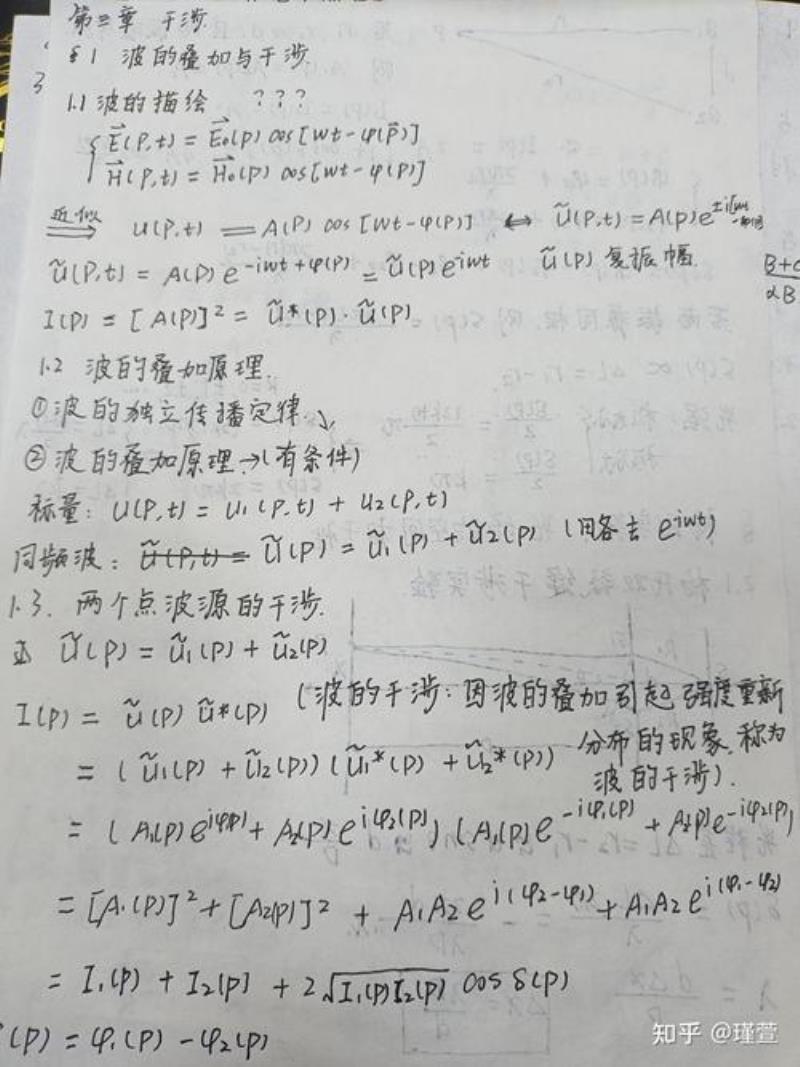 第三章 干涉
§1 波的叠加与干涉
1.1 波的描绘 ? ? ?
E⃗(P,t) = E⃗₀(P) cos[wt-φ(p⃗)]
H⃗(P,t) = H⃗₀(P) cos[wt-φ(P)]
近似 ⟹ U(P,t) = A(P) cos[wt-φ(P)] ↔ Ũ(P,t) = A(p)e
ũ(P,t) = A(P) e^{-iwt+φ(P)} = ũ(P)e^{iwt} ũ(P) 复振幅
I(P) = [A(P)]² = ũ*(P)·ũ(P)
1.2 波的叠加原理.
① 波的独立传播定律
② 波的叠加原理→(有条件)
标量: U(P,t) = u₁(P,t) + u₂(P,t)
同频波: Ũ(P,t) = Ũ(P) = ũ₁(P) + ũ₂(P) (同各去 e^{iwt})
1.3. 两个点波源的干涉.
Ũ(P) = ũ₁(P) + ũ₂(P)
I(P) = ũ(P) ũ*(P) (波的干涉: 因波的叠加引起强度重新
分布的现象, 称为
波的干涉).
= (ũ₁(P) + ũ₂(P)) (ũ₁*(P) + ũ₂*(P))
= (A₁(P)e^{iφ(P)} + A₂(P)e^{iφ₂(P)}) (A₁(P)e^{-iφ₁(P)} + A₂(P)e^{-iφ₂(P)})
= [A₁(P)]² + [A₂(P)]² + A₁A₂e^{i(φ₂-φ₁)} + A₁A₂e^{i(φ₁-φ₂)}
= I₁(P) + I₂(P) + 2√I₁(P)I₂(P) cos δ(P)
(P) = φ₁(P) - φ₂(P)
B+C
αB
知乎 @瑾萱